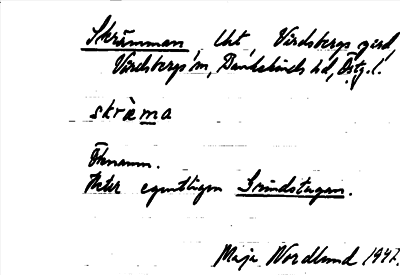 Skrämman, lht, Värdsbergs gård,
Vårdsbergs sn, Bankekinds hd, Östg. l.
skràma
Öknamn.
Heter egentligen Grindstugan.
Maja Nordlund 1947.